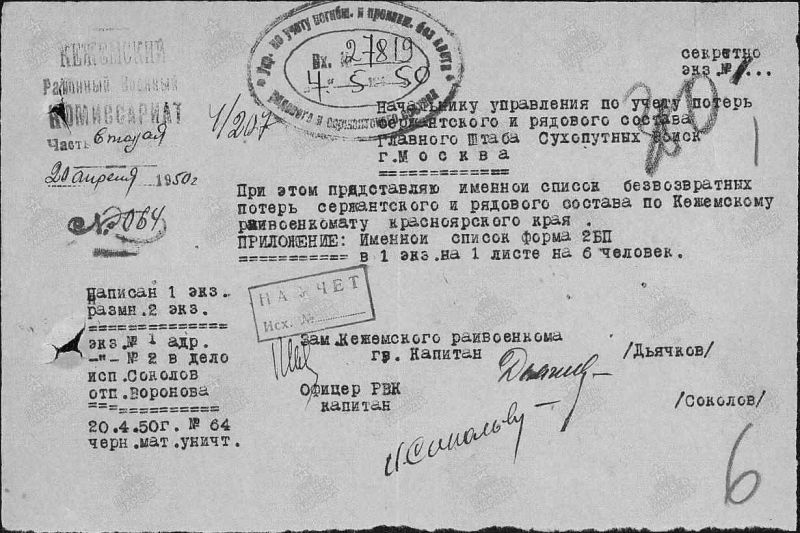 КЕЖЕМСКИЙ
Районный Военный
КОМИССАРИАТ
Часть вторая
20 апреля 1950г
№ 064
4/207
Упр. по учету погибш. и пропавш. без вести
Вх. № 27819
4 - 5 - 50
рядового и сержантского состава
секретно
экз.№ 1...
Начальнику управления по учету потерь
сержантского и рядового состава
Главного Штаба Сухопутных Войск
г.Москва
=============
1
При этом представляю именной список безвозвратных
потерь сержантского и рядового состава по Кежемскому
раивоенкомату красноярского края .
ПРИЛОЖЕНИЕ: Именнои список форма 2БП
=========== в 1 экз.на 1 листе на 6 человек.
НА УЧЕТ
Исх. №
Написан 1 экз.
размн.2 экз.
===============
экз.№ 1 адр.
-"- № 2 в дело
исп.Соколов
отп.Воронова
==============
20.4.50г. № 64
черн.мат.уничт.
Зам.Кежемского раивоенкома
гв. Капитан /Дьячков/
Офицер РВК
капитан /Соколов/
6